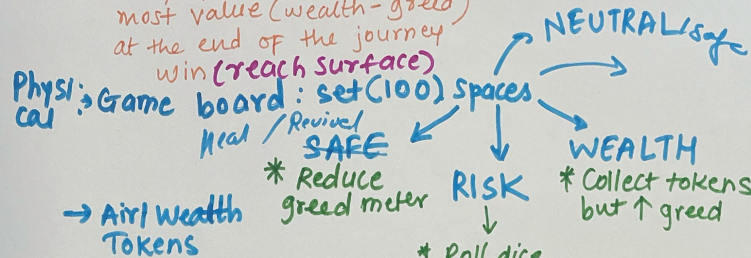 most value (wealth-greed)
at the end of the journey
win (reach surface)
NEUTRAL/safe
Physical : → Game board : set(100) spaces
Heal / Revival
SAFE
WEALTH
* Reduce
greed meter
RISK
* Collect tokens
but ↑ greed
→ Air/Wealth
Tokens
* Roll dice